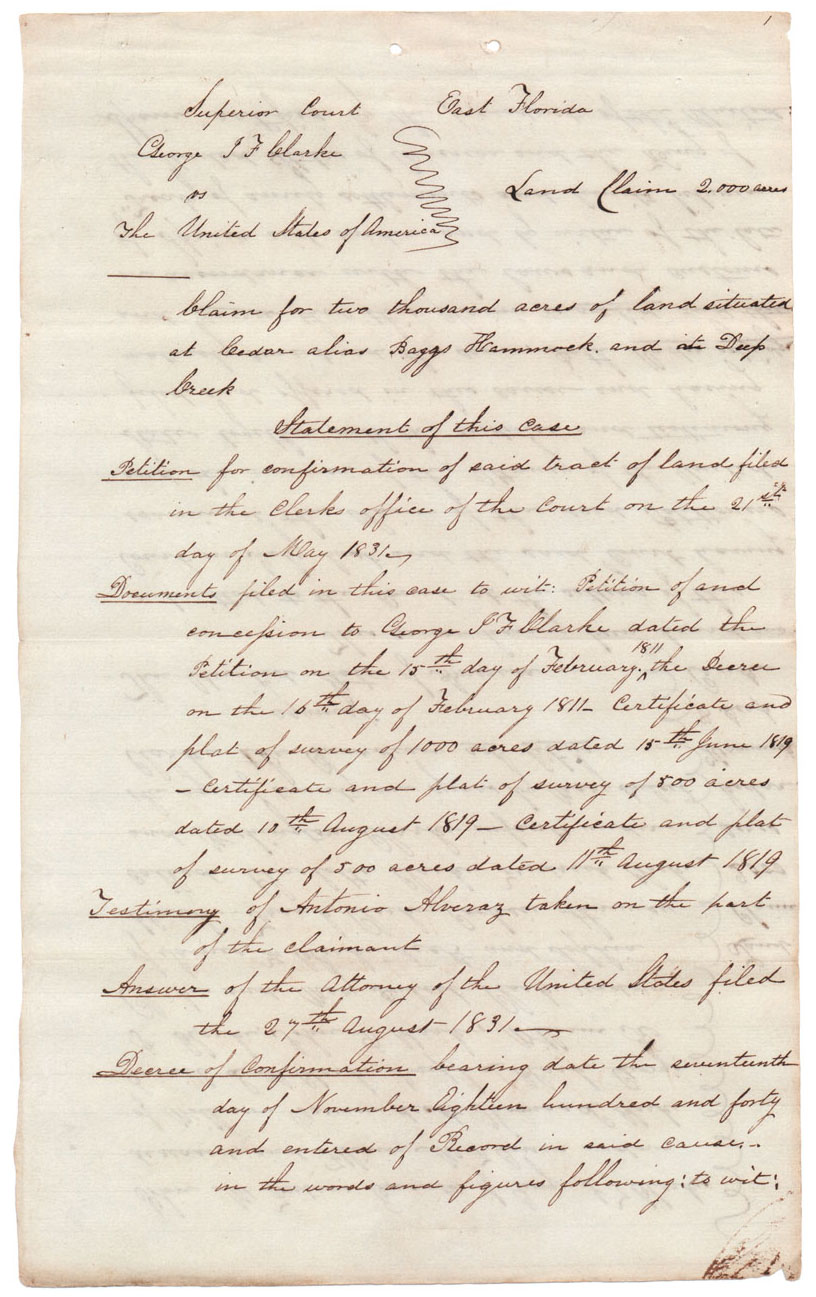 1
Superior Court East Florida
George J F Clarke
vs Land Claim 2.000 acres
The United States of America
Claim for two thousand acres of land situated
at Cedar alias Baggs Hammock. and at Deep
Creek
Statement of this case
Petition for confirmation of said tract of land filed
in the Clerks office of the Court on the 21st
day of May 1831
Documents filed in this case to wit: Petition of and
concession to George J F Clarke dated the
Petition on the 15th day of February 1811 the Decree
on the 16th day of February 1811 - Certificate and
plat of survey of 1000 acres dated 15th June 1819
- Certificate and plat of survey of 500 acres
dated 10th August 1819 - Certificate and plat
of survey of 500 acres dated 11th August 1819
Testimony of Antonio Alveraz taken on the part
of the claimant
Answer of the Attorney of the United States filed
the 27th August 1831
Decree of Confirmation bearing date the seventeenth
day of November Eighteen hundred and forty
and entered of Record in said cause. -
in the words and figures following: to wit: